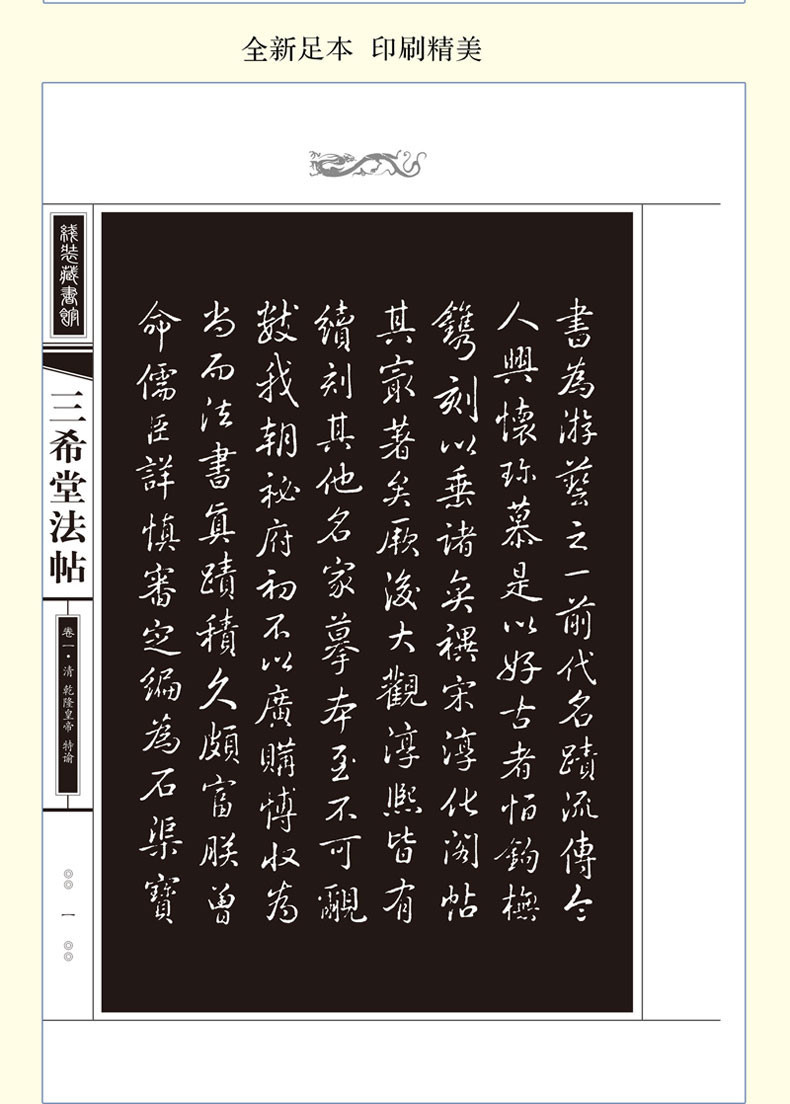 全新足本 印刷精美
書為游藝之一前代名蹟流傳令
人興懷珎慕是以好古者恒鉤橅
鐫刻以垂諸奕禩宋淳化阁帖
其寂著矣厥後大觀淳熙皆有
續刻其他名家摹本至不可覼
數我朝秘府初不以廣購博收為
尚而法書真蹟積久頗富朕曾
命儒臣詳慎審定編為石渠寶
线装藏書館
三希堂法帖
卷一·清 乾隆皇帝 特谕
一